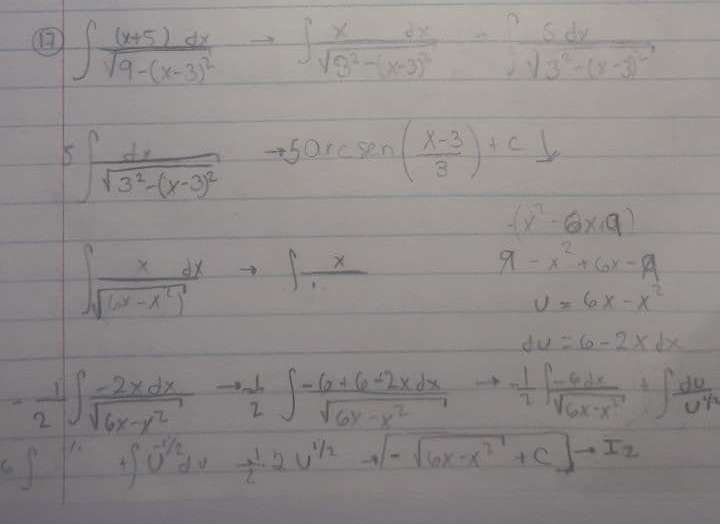 (17) ∫ (x+5) dx / √9-(x-3)² → ∫ x dx / √3²-(x-3)² - ∫ 5 dx / √3²-(x-3)²
5 ∫ dx / √3²-(x-3)² → 5 arcsen (x-3 / 3) + c ↓
-(x²-6x+9)
∫ x dx / √6x-x² → ∫ x
9 - x² + 6x - 9
u = 6x - x²
du = 6 - 2x dx
- 1/2 ∫ -2x dx / √6x-x² → -1/2 ∫ -6+6-2x dx / √6x-x² → -1/2 ∫ -6 dx / √6x-x² + ∫ du / u^1/2
∫ + ∫ u^-1/2 du → -1/2 · 2 u^1/2 → [- √6x-x² + c] → I2